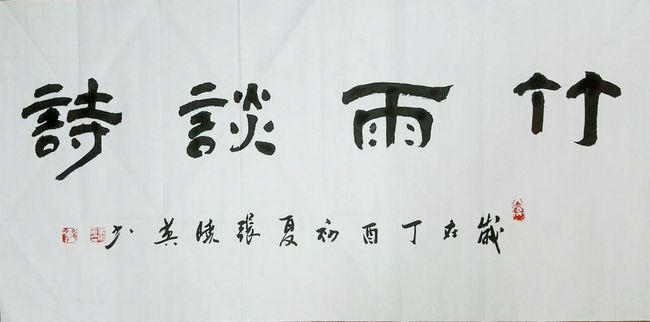 竹雨談詩
歲在丁酉初夏張曉英书